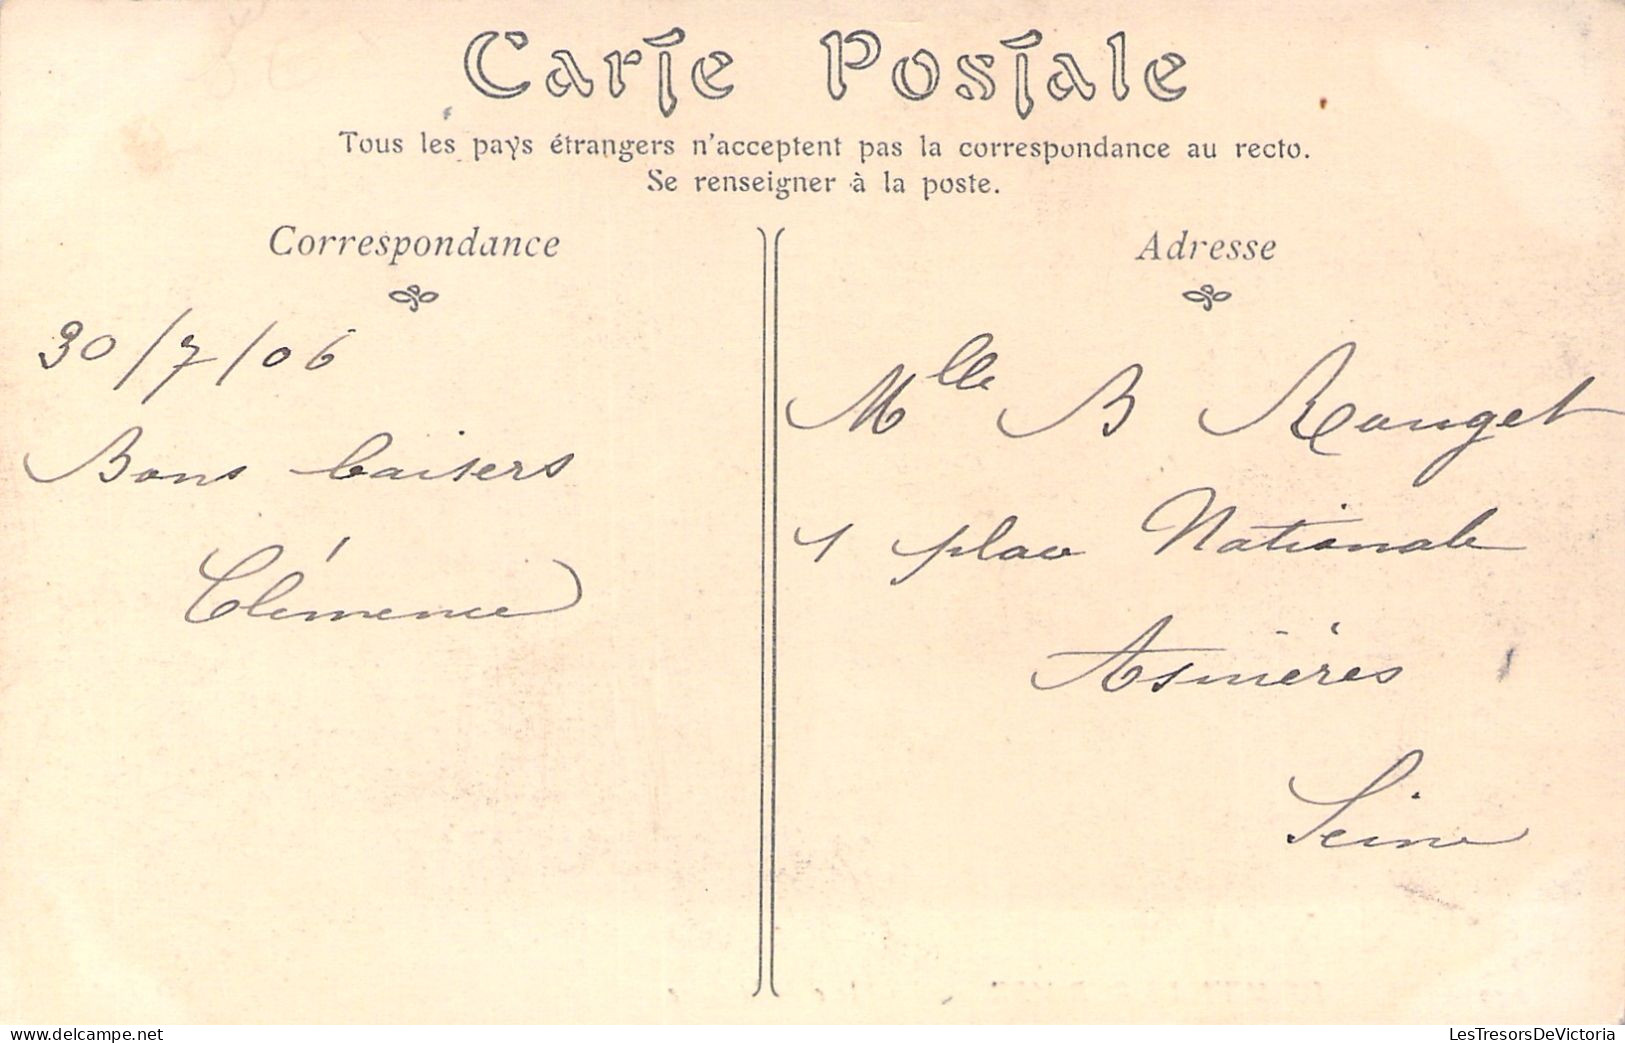 Carte Postale
Tous les pays étrangers n'acceptent pas la correspondance au recto.
Se renseigner à la poste.
Correspondance
30/7/06
Bons baisers
Clémence
Adresse
Mlle B Rouget
1 place Nationale
Asnières
Seine
delcampe.net
LesTresorsDeVictoria